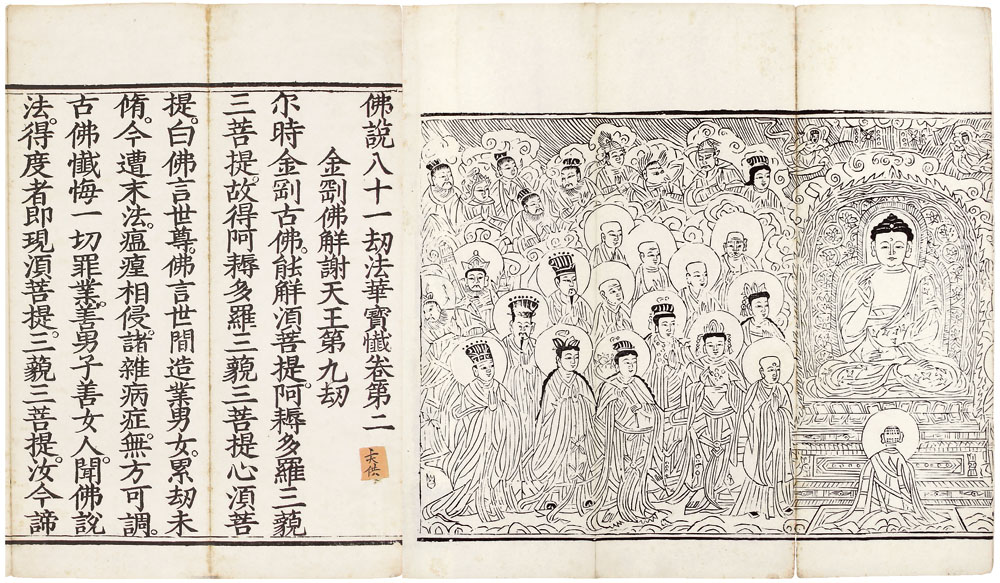 佛說八十一刼法華寶懺卷第二
金剛佛解謝天王第九刼
尒時金剛古佛。能解湏菩提。阿耨多羅三藐
三菩提。故得阿耨多羅三藐三菩提心湏菩
提。白佛言世尊。佛言世間造業男女。累刼未
脩。今遭末法。瘟瘽相侵。諸雜病症。無方可調。
古佛懺悔一切罪業。善男子善女人。聞佛說
法。得度者即現湏菩提。三藐三菩提。汝今諦